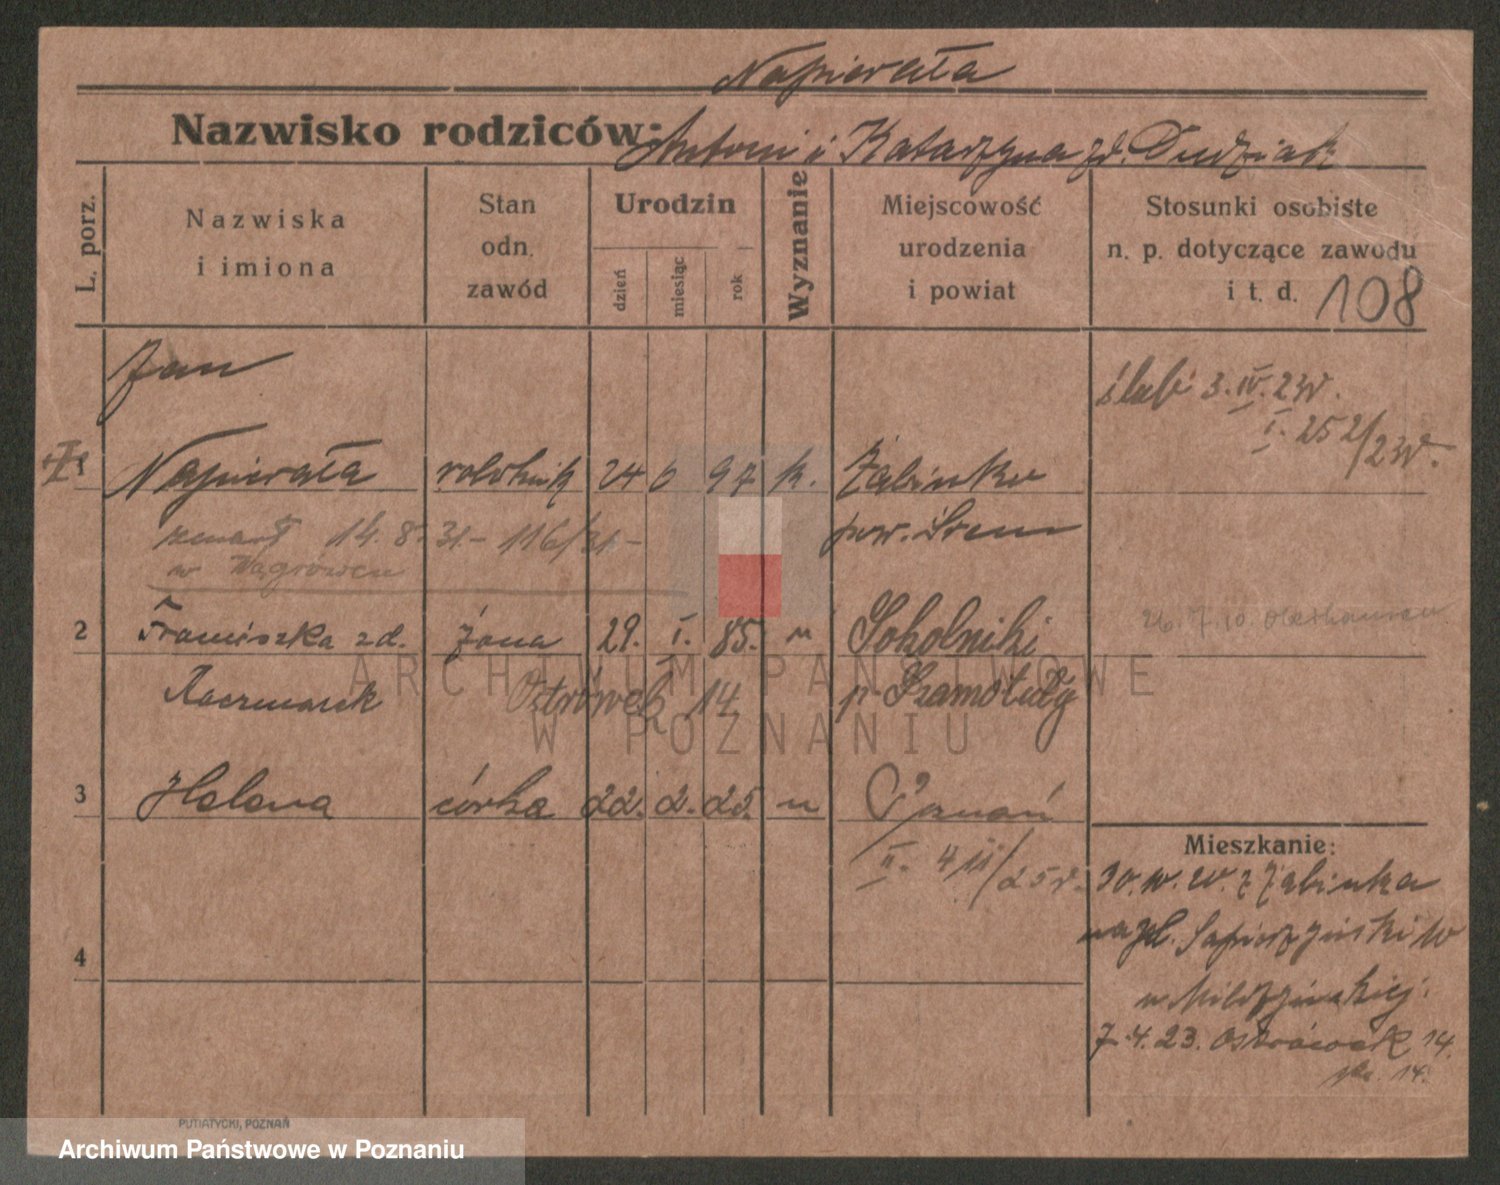 Napierała
Nazwisko rodziców: Antoni i Katarzyna zd. Dudziak
L. porz.
Nazwiska
i imiona
Stan
odn.
zawód
Urodzin
dzień
miesiąc
rok
Wyznanie
Miejscowość
urodzenia
i powiat
Stosunki osobiste
n. p. dotyczące zawodu
i t. d. 108
Jan
ślub 3. IV. 23r.
I. 252/23r.
1 Napierała robotnik 24 6 97 k. Żabinko
pow. Śrem
zmarł 14. 8. 31 - 116/31 -
w Wągrówcu
2 Franciszka zd. żona 29. I. 85. " Sokolniki
26. 7. 10.
Kaczmarek Ostrówek 14 p. Szamotuły
3 Helena córka 22. 2. 25. " Poznań
II. 411/25r.
4
Mieszkanie:
30. 10. 20. z Żabinka
10
7. 4. 23. Ostrówek 14.
14.
PUTIATYCKI, POZNAŃ
ARCHIWUM PAŃSTWOWE
W POZNANIU
Archiwum Państwowe w Poznaniu